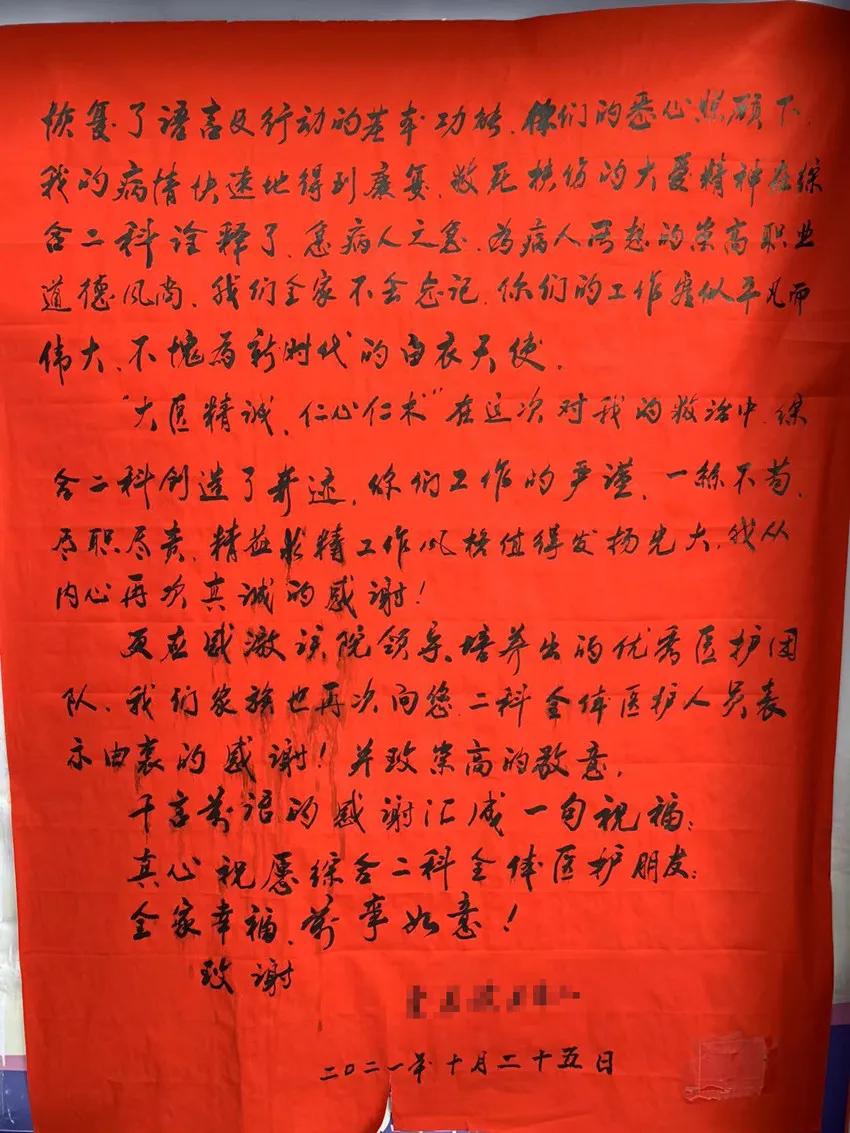 恢复了语言及行动的基本功能、你们的悉心照顾下、
我的病情快速地得到康复、救死扶伤的大爱精神在综
合二科诠释了、急病人之急、为病人所想的崇高职业
道德风尚、我们全家不会忘记、你们的工作看似平凡而
伟大、不愧为新时代的白衣天使。
“大医精诚、仁心仁术”在这次对我的救治中、综
合二科创造了奇迹、你们工作的严谨、一丝不苟、
尽职尽责、精益求精工作风格值得发扬光大、我从
内心再次真诚的感谢！
更应感激该院领导、培养出的优秀医护团
队、我们家族也再次向您、二科全体医护人员表
示由衷的感谢！并致崇高的敬意。
千言万语的感谢汇成一句祝福：
真心祝愿综合二科全体医护朋友：
全家幸福、万事如意！
致谢
二〇二一年十月二十五日